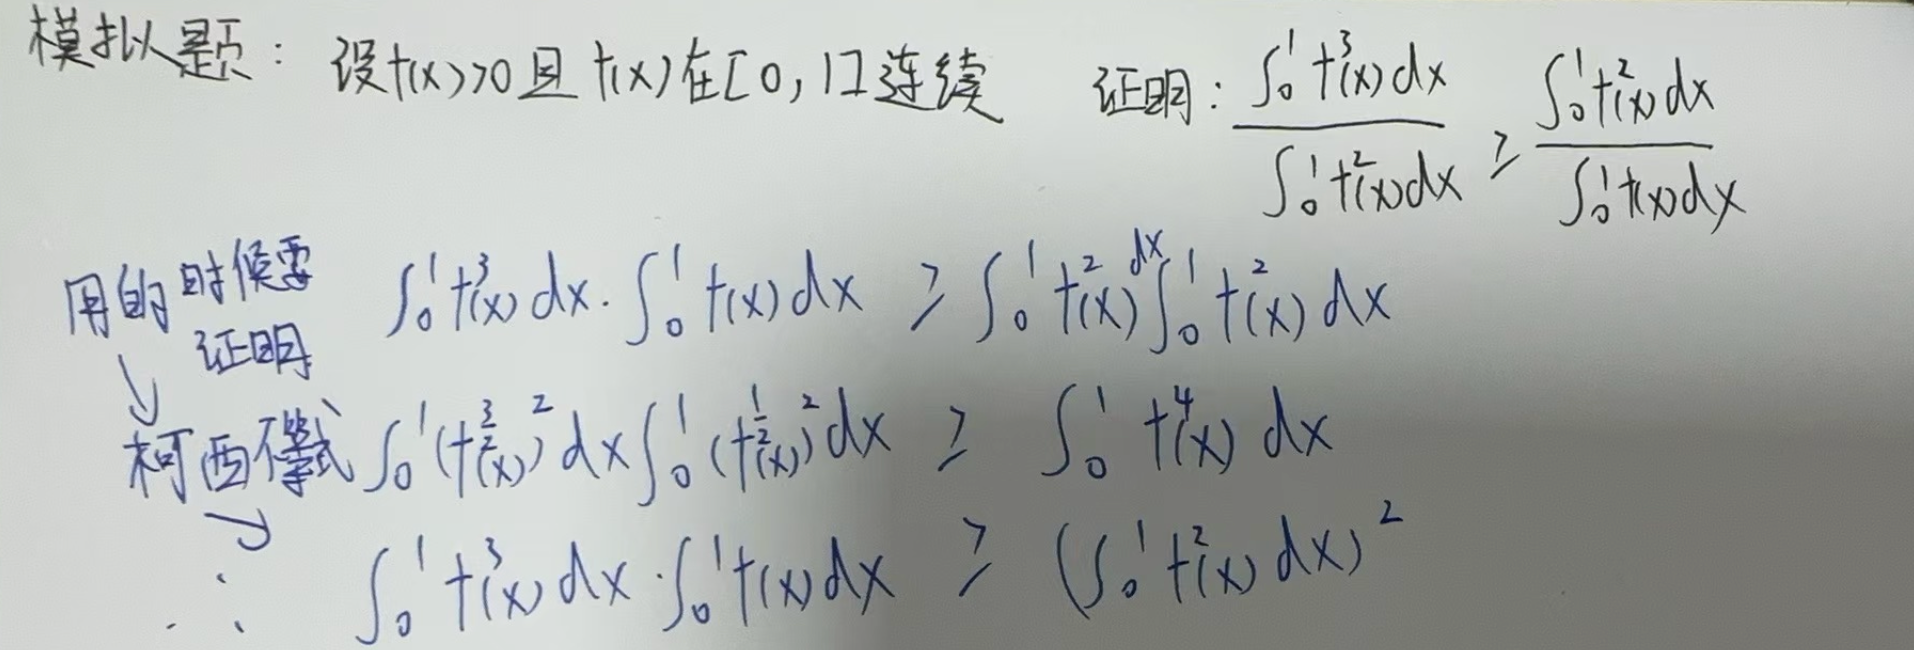 模拟题：设f(x)>0且f(x)在[0,1]连续 证明：∫₀¹f³(x)dx / ∫₀¹f²(x)dx ≥ ∫₀¹f²(x)dx / ∫₀¹f(x)dx
用的时候要 ∫₀¹f³(x)dx·∫₀¹f(x)dx ≥ ∫₀¹f²(x)dx∫₀¹f²(x)dx
证明
↓
柯西不等式 ∫₀¹(f^{3/2}(x))²dx∫₀¹(f^{1/2}(x))²dx ≥ ∫₀¹f⁴(x)dx
∴ ∫₀¹f³(x)dx·∫₀¹f(x)dx ≥ (∫₀¹f²(x)dx)²